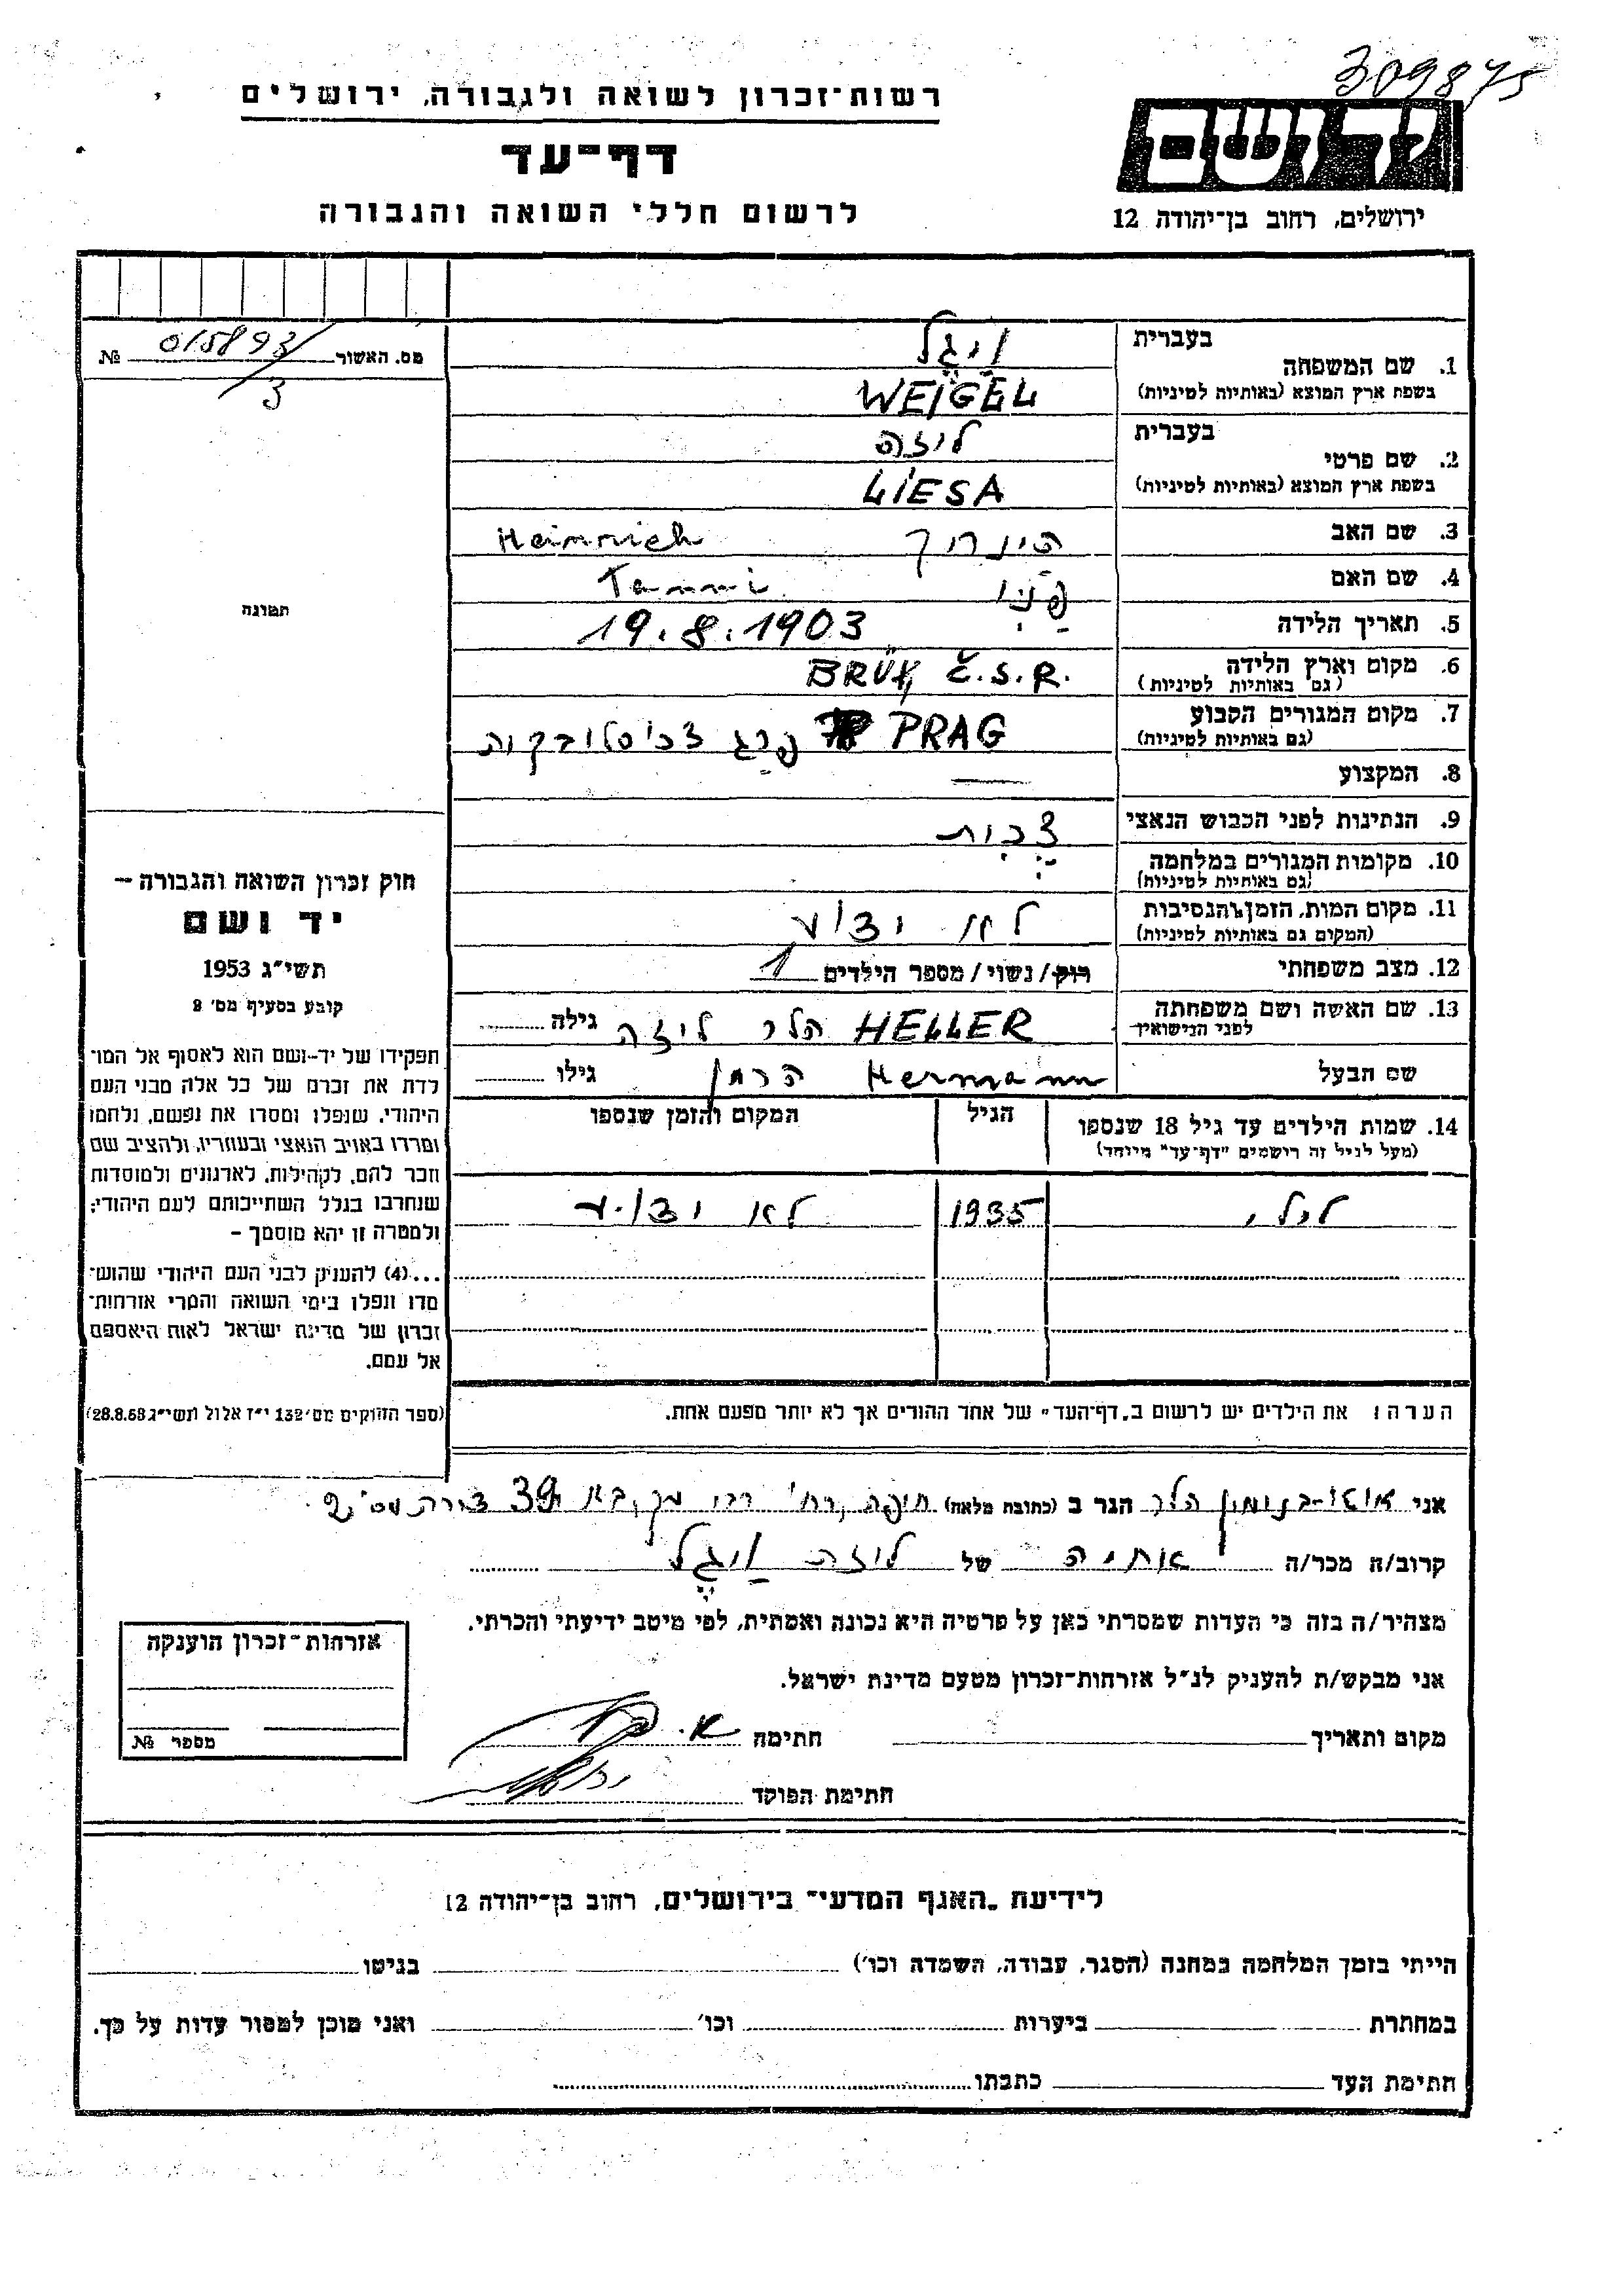 309875
רשות־זכרון לשואה ולגבורה, ירושלים
דף־עד
לרשום חללי השואה והגבורה
יד ושם
ירושלים, רחוב בן־יהודה 12
מס. האשור 015893/3 №
תמונה
1. שם המשפחה
בעברית ויגל
בשפת ארץ המוצא (באותיות לטיניות) WEIGEL
2. שם פרטי
בעברית ליזה
בשפת ארץ המוצא (באותיות לטיניות) LIESA
3. שם האב הינריך Heinrich
4. שם האם פני
5. תאריך הלידה 19.8.1903
6. מקום וארץ הלידה BRÜX, Č.S.R.
(גם באותיות לטיניות)
7. מקום המגורים הקבוע PRAG פרג צ'כוסלובקיה
(גם באותיות לטיניות)
8. המקצוע —
9. הנתינות לפני הכבוש הנאצי צ'כית
10. מקומות המגורים במלחמה
(גם באותיות לטיניות)
11. מקום המות, הזמן והנסיבות לא ידוע
(המקום גם באותיות לטיניות)
12. מצב משפחתי רוק/נשוי/מספר הילדים 1
13. שם האשה ושם משפחתה HELLER הלר ליזה גילה
לפני הנישואין
שם הבעל Hermann הרמן גילו
14. שמות הילדים עד גיל 18 שנספו הגיל המקום והזמן שנספו
(מעל לגיל זה רושמים "דף־עד" מיוחד)
לילי 1935 לא ידוע
הערה: את הילדים יש לרשום ב„דף־העד" של אחד ההורים אך לא יותר מפעם אחת.
חוק זכרון השואה והגבורה —
יד ושם
תשי"ג 1953
קובע בסעיף מס' 8
תפקידו של יד–ושם הוא לאסוף אל המו־
לדת את זכרם של כל אלה מבני העם
היהודי, שנפלו ומסרו את נפשם, נלחמו
ומרדו באויב הנאצי ובעוזריו, ולהציב שם
וזכר להם, לקהילות, לארגונים ולמוסדות
שנחרבו בגלל השתייכותם לעם היהודי;
ולמטרה זו יהא מוסמך –
...(4) להעניק לבני העם היהודי שהוש־
מדו ונפלו בימי השואה והמרי אזרחות־
זכרון של מדינת ישראל לאות היאספם
אל עמם.
(ספר החוקים מס' 132 י"ז אלול תשי"ג 28.8.53)
אני הלר הגר ב (כתובת מלאה) חיפה, רח' 39
קרוב/ה מכר/ה אחיה של ליזה ויגל
מצהיר/ה בזה כי העדות שמסרתי כאן על פרטיה היא נכונה ואמתית, לפי מיטב ידיעתי והכרתי.
אני מבקש/ת להעניק לנ"ל אזרחות־זכרון מטעם מדינת ישראל.
מקום ותאריך חתימה
חתימת הפוקד
אזרחות־זכרון הוענקה
מספר №
לידיעת „האגף המדעי" בירושלים, רחוב בן־יהודה 12
הייתי בזמן המלחמה במחנה (הסגר, עבודה, השמדה וכו') בגיטו
במחתרת ביערות וכו' ואני מוכן למסור עדות על כך.
חתימת העד כתבתו